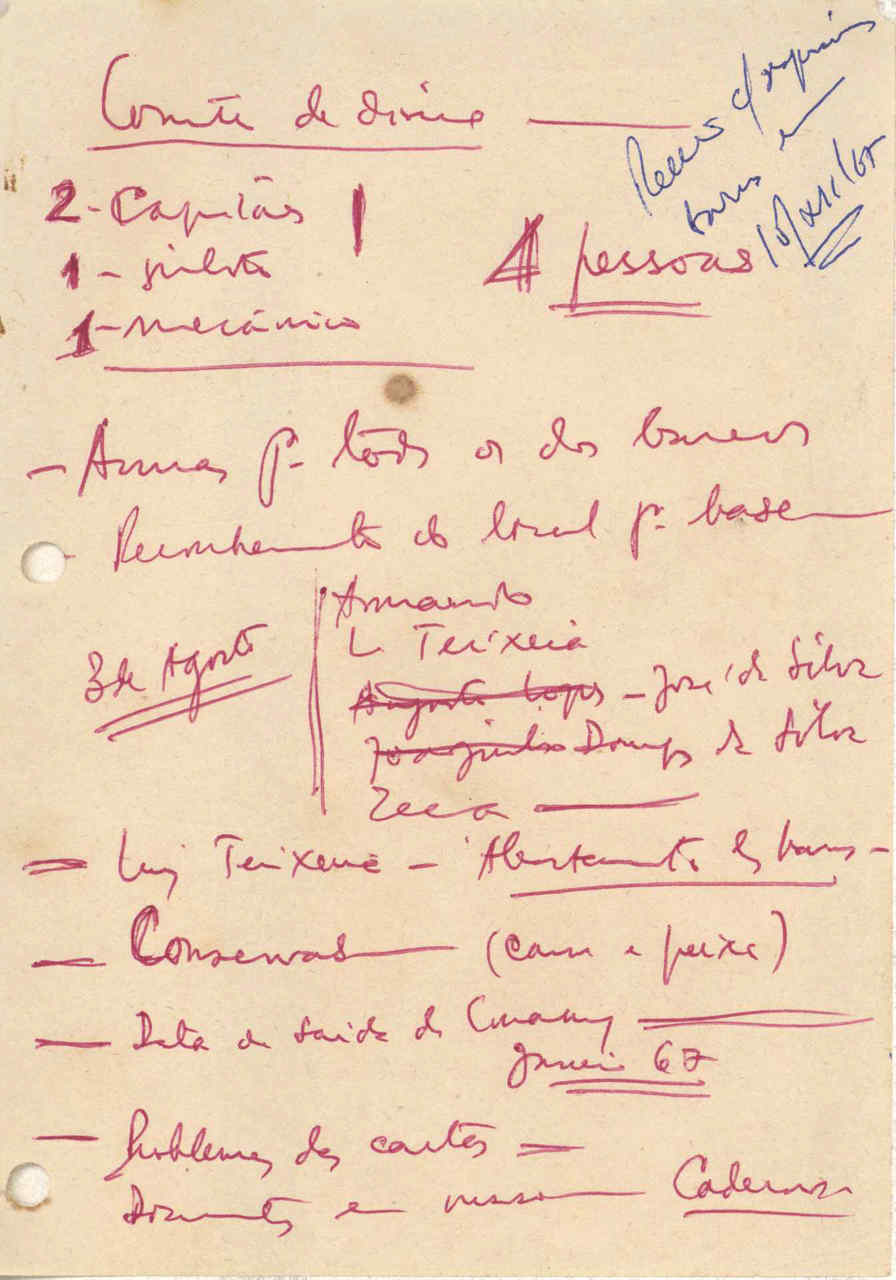 Comité de
2 - Capitães
1 - piloto
1 - mecânico
4 pessoas
Reunião c/ responsáveis
barcos
10/XII/67
- Armas p. todos os dos barcos
- Reconhecimento do local p. base
3 de Agosto
Armando
L Teixeira
Augusto Lopes - José da Silva
Joaquim Domingos da Silva
Zeca
- Luiz Teixeira - Abastecimento dos barcos -
- Conservas (carne e peixe)
- Data de saída de Conakry
Janeiro 67
- Problemas das cartas -
Documentos e Cadernos